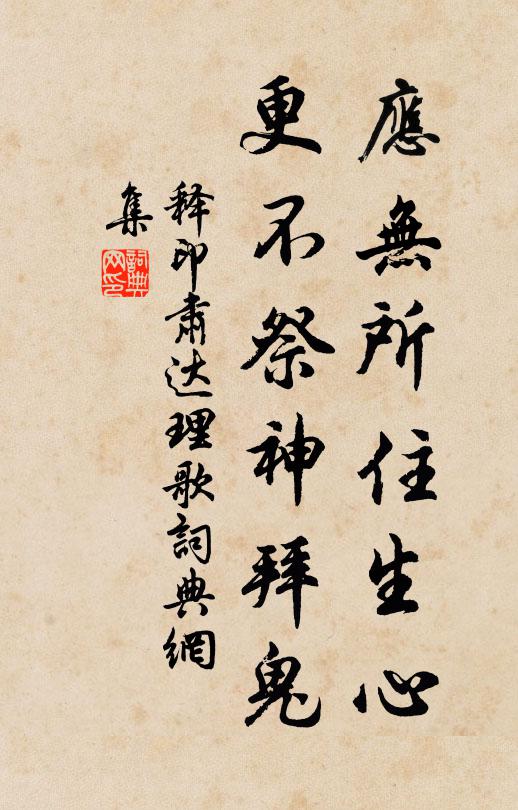 應無所住生心
更不祭神拜鬼
释印肅达理歌詞典網
集
詞典
网印